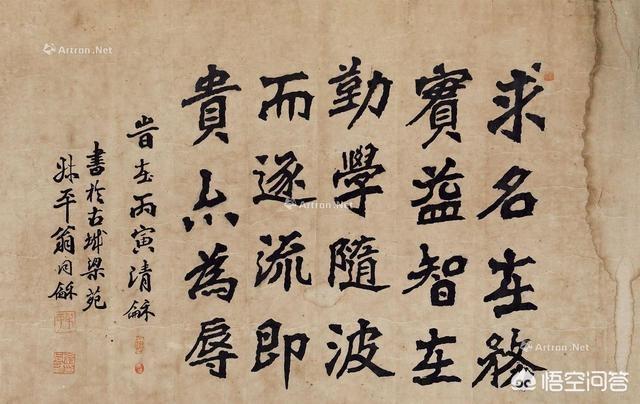 求名在務
實益智在
勤學隨波
而遂流即
貴亦為辱
旹在丙寅清龢
書於古城梁苑
叔平翁同龢
Artron.Net
Artron.Net
Artron.Net
Artron.Net
悟空问答